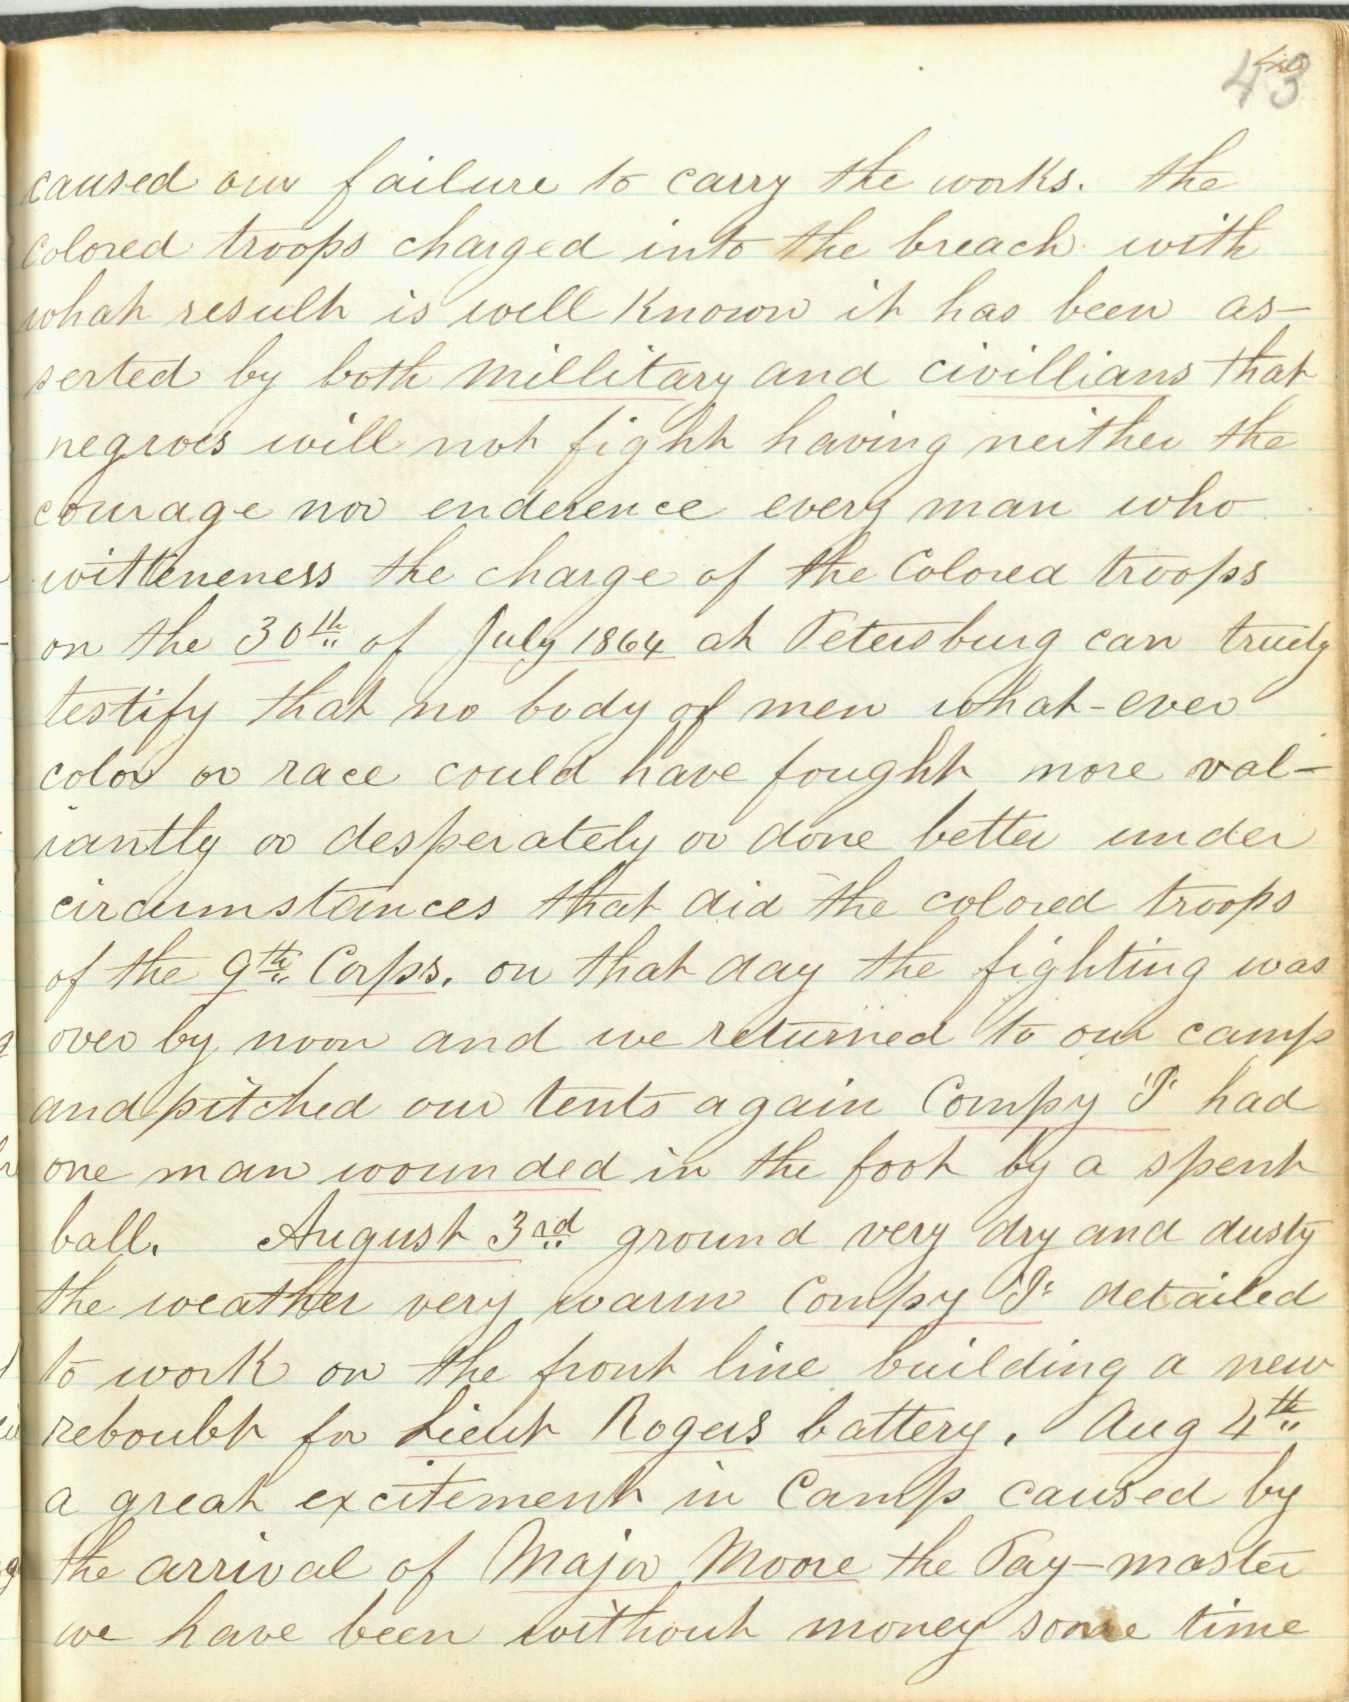 43
caused our failure to carry the works. the
colored troops charged into the breach with
what result is well known it has been as-
serted by both millitary and civillians that
negroes will not fight having neither the
courage nor enderence every man who
witteneness the charge of the Colored troops
on the 30th of July 1864 at Petersburg can truely
testify that no body of men what-ever
color or race could have fought more val-
iantly or desperately or done better under
circumstances that did the colored troops
of the 9th Corps. on that day the fighting was
over by noon and we returned to our camp
and pitched our tents again Compy "I" had
one man wounded in the foot by a spent
ball. August 3rd ground very dry and dusty
the weather very warm Compy "I" detailed
to work on the front line building a new
reboubt for Lieut Rogers battery. Aug 4th
a great excitement in Camp caused by
the arrival of Major Moore the Pay-master
we have been without money some time